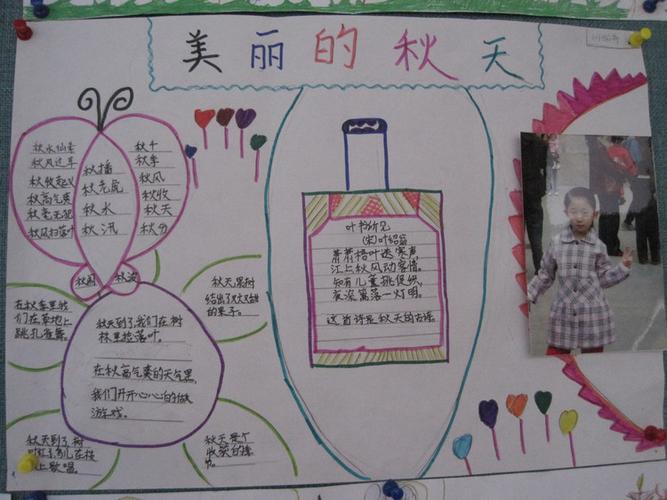 美丽的秋天
秋水仙季
秋风过耳
秋收起义
秋高气爽
秋毫无犯
秋风扫落叶
秋播
秋老虎
秋水
秋汛
秋千
秋季
秋风
秋收
秋天
秋分
秋波
秋天到了,我们在树
林里捡落叶。
在秋高气爽的天气里,
我们开开心心的做
游戏。
在秋季里我
们在草地上
跳孔雀舞。
秋天,果树
结出了又大又甜
的果子。
秋天到了,树
上歌唱。
秋天是个
收获的季
节。
叶绍翁
萧萧梧叶送寒声,
江上秋风动客情。
知有儿童挑促织,
夜深篱落一灯明。
这首诗是秋天的古诗。